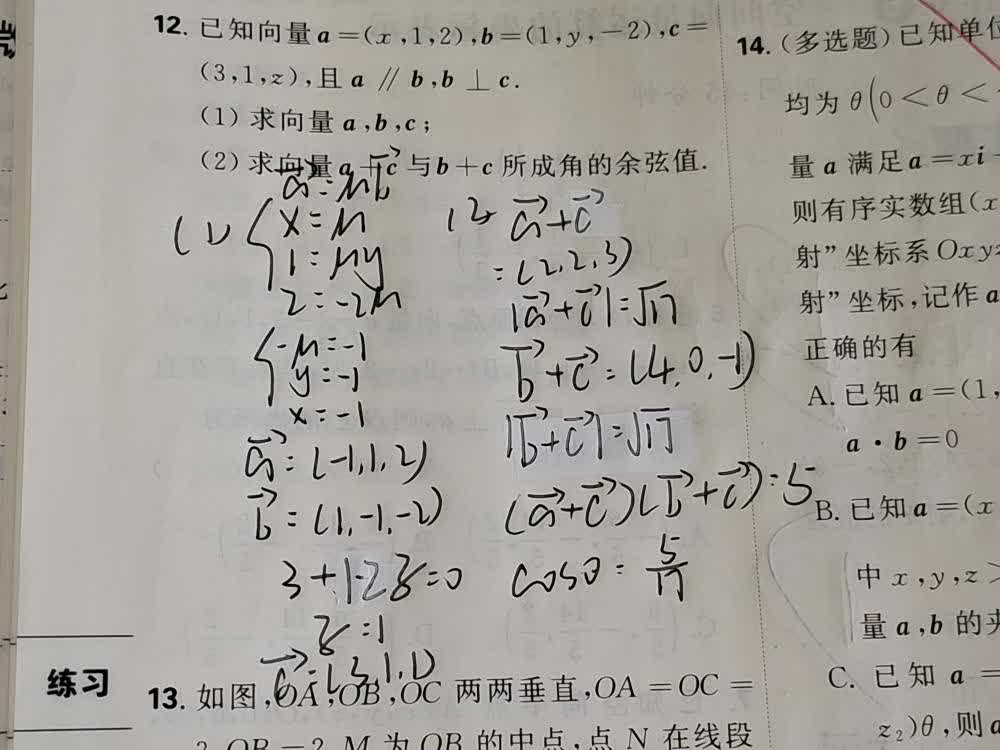 12. 已知向量a=(x,1,2),b=(1,y,-2),c=
(3,1,z),且 a ∥ b,b ⊥ c.
(1) 求向量 a,b,c;
(2) 求向量 a+c 与 b+c 所成角的余弦值.
a=μb
(1) { x=μ
1=μy
2=-2μ
{ -μ=-1
y=-1
x=-1
a=(-1,1,2)
b=(1,-1,-2)
3+1-2z=0
z=1
c=(3,1,1)
(2) a+c
=(2,2,3)
|a+c|=√17
b+c=(4,0,-1)
|b+c|=√17
(a+c)(b+c)=5
cosθ=5/17
练习
13. 如图,OA,OB,OC 两两垂直,OA=OC=
2,OB=2,M 为 OB 的中点,点 N 在线段
14. (多选题)已知单位
均为 θ(0<θ<
量 a 满足 a=xi
则有序实数组(x
射”坐标系 Oxyz
射”坐标,记作 a
正确的有
A. 已知 a=(1,
a·b=0
B. 已知 a=(x
中 x,y,z>
量 a,b 的夹
C. 已知 a=
z₂)θ,则 a